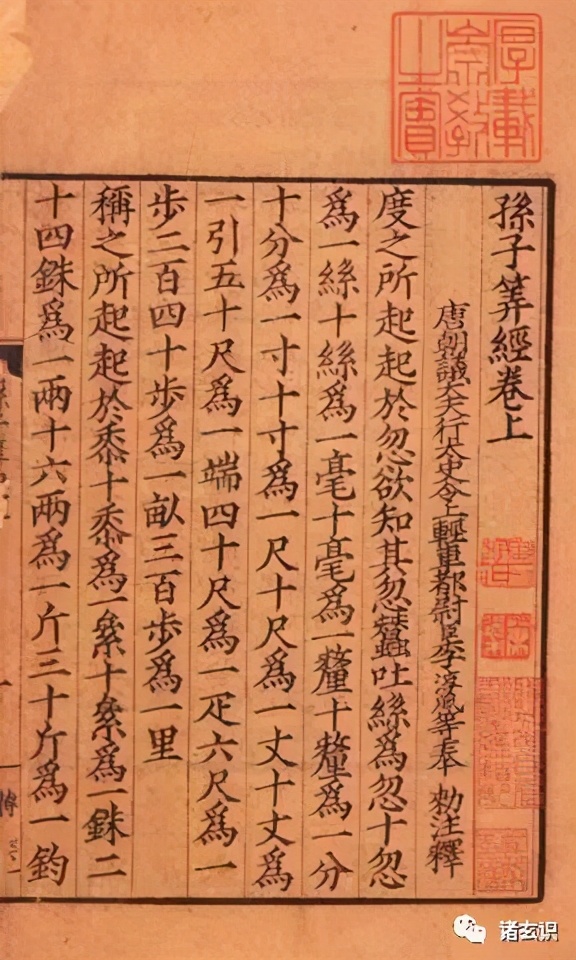 孫子筭經卷上
唐朝議大夫行太史令上輕車都尉臣李淳風等奉 勑注釋
度之所起起於忽欲知其忽蠶吐絲爲忽十忽
爲一絲十絲爲一毫十毫爲一釐十釐爲一分
十分爲一寸十寸爲一尺十尺爲一丈十丈爲
一引五十尺爲一端四十尺爲一疋六尺爲一
歩二百四十歩爲一畝三百歩爲一里
稱之所起起於黍十黍爲一絫十絫爲一銖二
十四銖爲一兩十六兩爲一斤三十斤爲一鈞
诸玄识